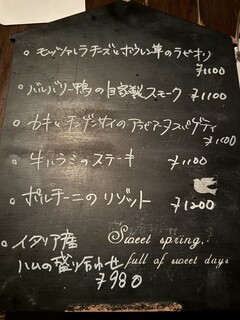 。モッツァレラチーズとホウレン草のラビオリ
¥1100
。バルバリー鴨の自家製スモーク ¥1100
。カキとチンゲンサイのアラビアータスパゲティ
¥1100
。牛ハラミのステーキ ¥1100
。ポルチーニのリゾット ¥1200
。イタリア産
ハムの盛り合わせ
¥980
Sweet spring,
full of sweet days